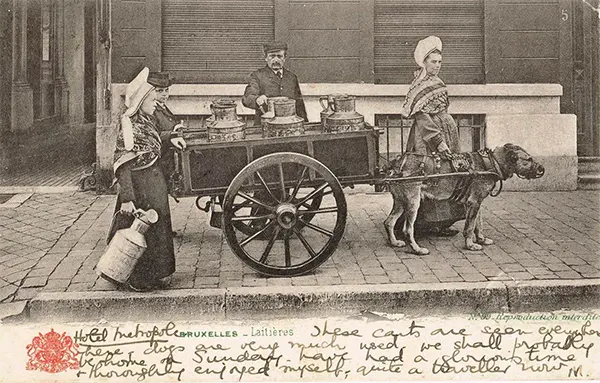 5
N. 65 Reproduction interdite
BRUXELLES - Laitières
Hotel Metropole These carts are seen everywhere
here, dogs are very much used, we shall probably
be home on Sunday. have had a glorious time
& thoroughly enjoyed myself, quite a traveller now M.